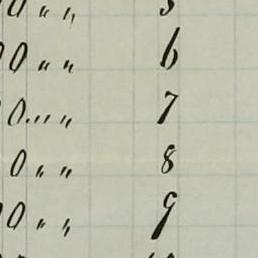 0 " " 5
00 " " 6
0 ... " 7
0 " " 8
00 " " 9